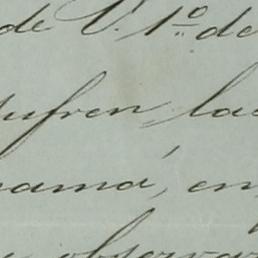 de V. 1º de
sufren las
namá, en
observar